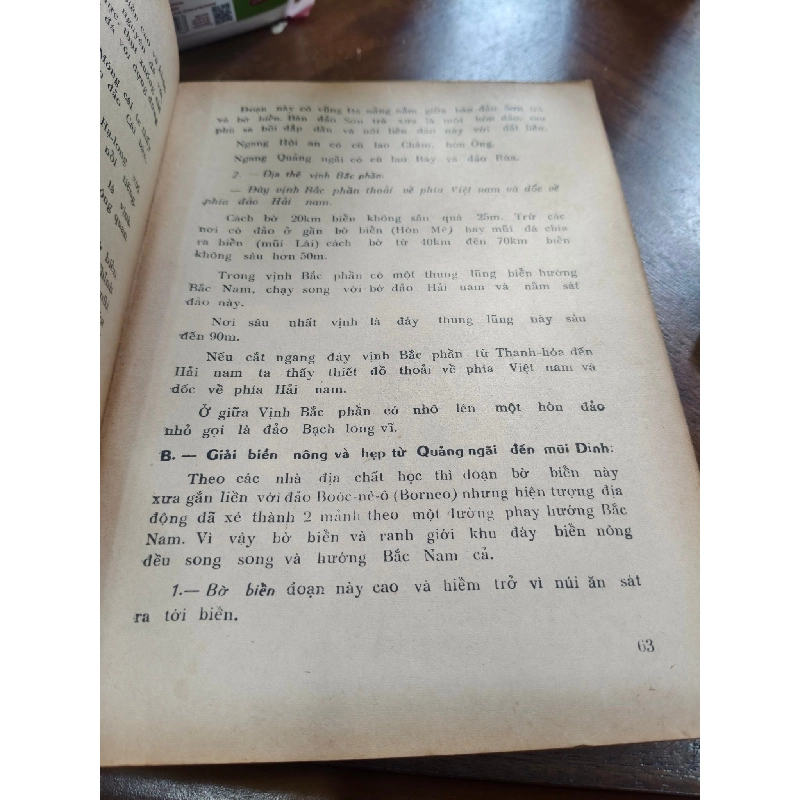 Đoạn này có vũng Đà nẵng nằm giữa bán đảo Sơn trà
và bờ biển. Bán đảo Sơn trà xưa là một hòn đảo, sau
phù sa bồi đắp dần và nối liền đảo này với đất liền.
Ngang Hội an có cù lao Chàm, hòn Ông.
Ngang Quảng ngãi có cù lao Ray và đảo
2. — Địa thế vịnh Bắc phần.
— Đáy vịnh Bắc phần thoải về phía Việt nam và dốc về
phía đảo Hải nam.
Cách bờ 20km biển không sâu quá 25m. Trừ các
nơi có đảo ở gần bờ biển (Hòn Mê) hay mũi đá chìa
ra biển (mũi Lài) cách bờ từ 40km đến 70km biển
không sâu hơn 50m.
Trong vịnh Bắc phần có một thung lũng biển hướng
Bắc Nam, chạy song với bờ đảo Hải nam và nằm sát
đảo này.
Nơi sâu nhất vịnh là đáy thung lũng này sâu
đến 90m.
Nếu cắt ngang đáy vịnh Bắc phần từ Thanh-hóa đến
Hải nam ta thấy thiết đồ thoải về phía Việt nam và
dốc về phía Hải nam.
Ở giữa Vịnh Bắc phần có nhô lên một hòn đảo
nhỏ gọi là đảo Bạch long vĩ.
B. — Giải biển nông và hẹp từ Quảng ngãi đến mũi Dinh:
Theo các nhà địa chất học thì đoạn bờ biển này
xưa gắn liền với đảo Boóc-nê-ô (Borneo) nhưng hiện tượng địa
động đã xé thành 2 mảnh theo một đường phay hướng Bắc
Nam. Vì vậy bờ biển và ranh giới khu đáy biển nông
đều song song và hướng Bắc Nam cả.
1.— Bờ biển đoạn này cao và hiểm trở vì núi ăn sát
ra tới biển.
63